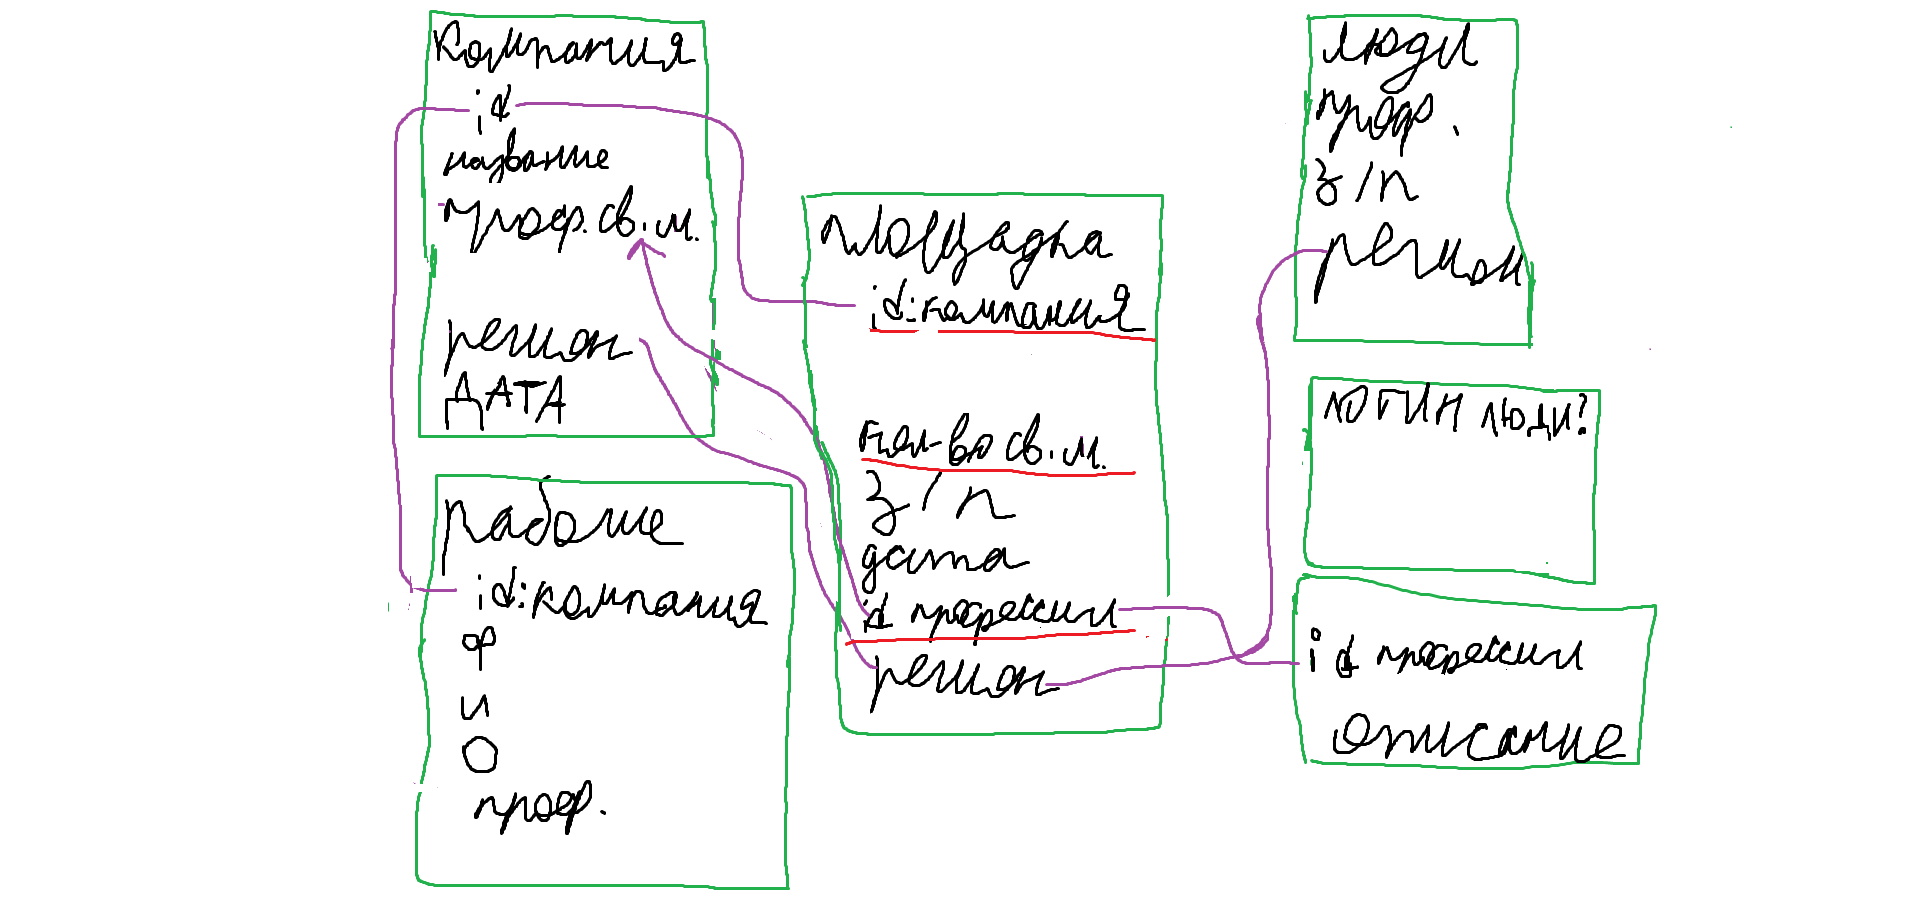 компания
id
название
проф. св. м.
регион
ДАТА
рабочие
id:компания
ф
и
О
проф.
площадка
id:компания
кол-во св. м.
з/п
дата
id профессии
регион
люди
проф.
з/п
регион
ЛОГИН ЛЮДИ?
id профессии
описание